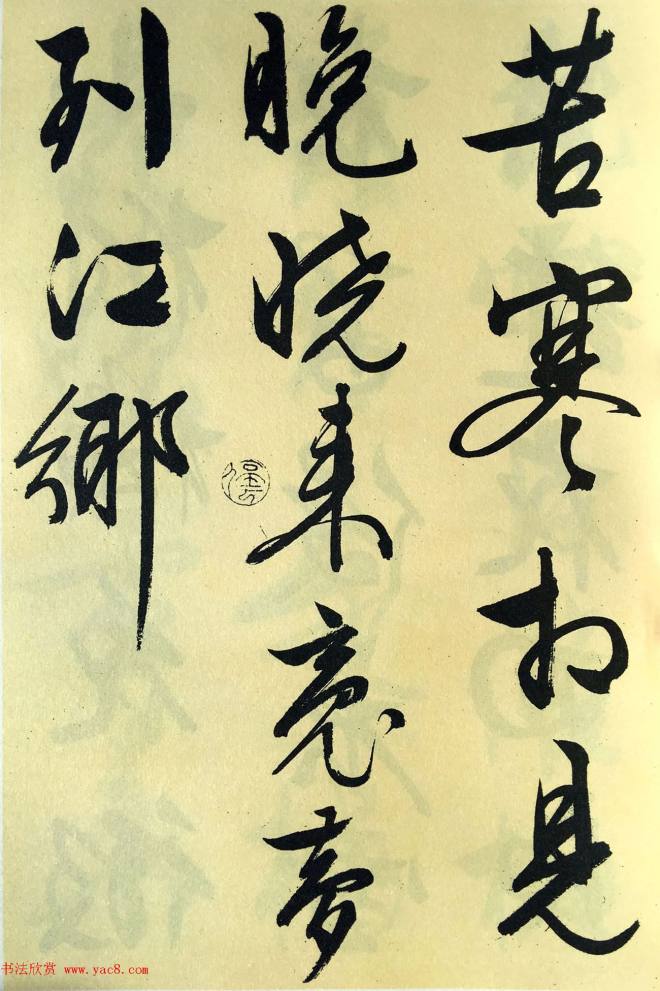 苦寒相見
晚晓来夢
到江鄉
书法欣赏 www.yac8.com